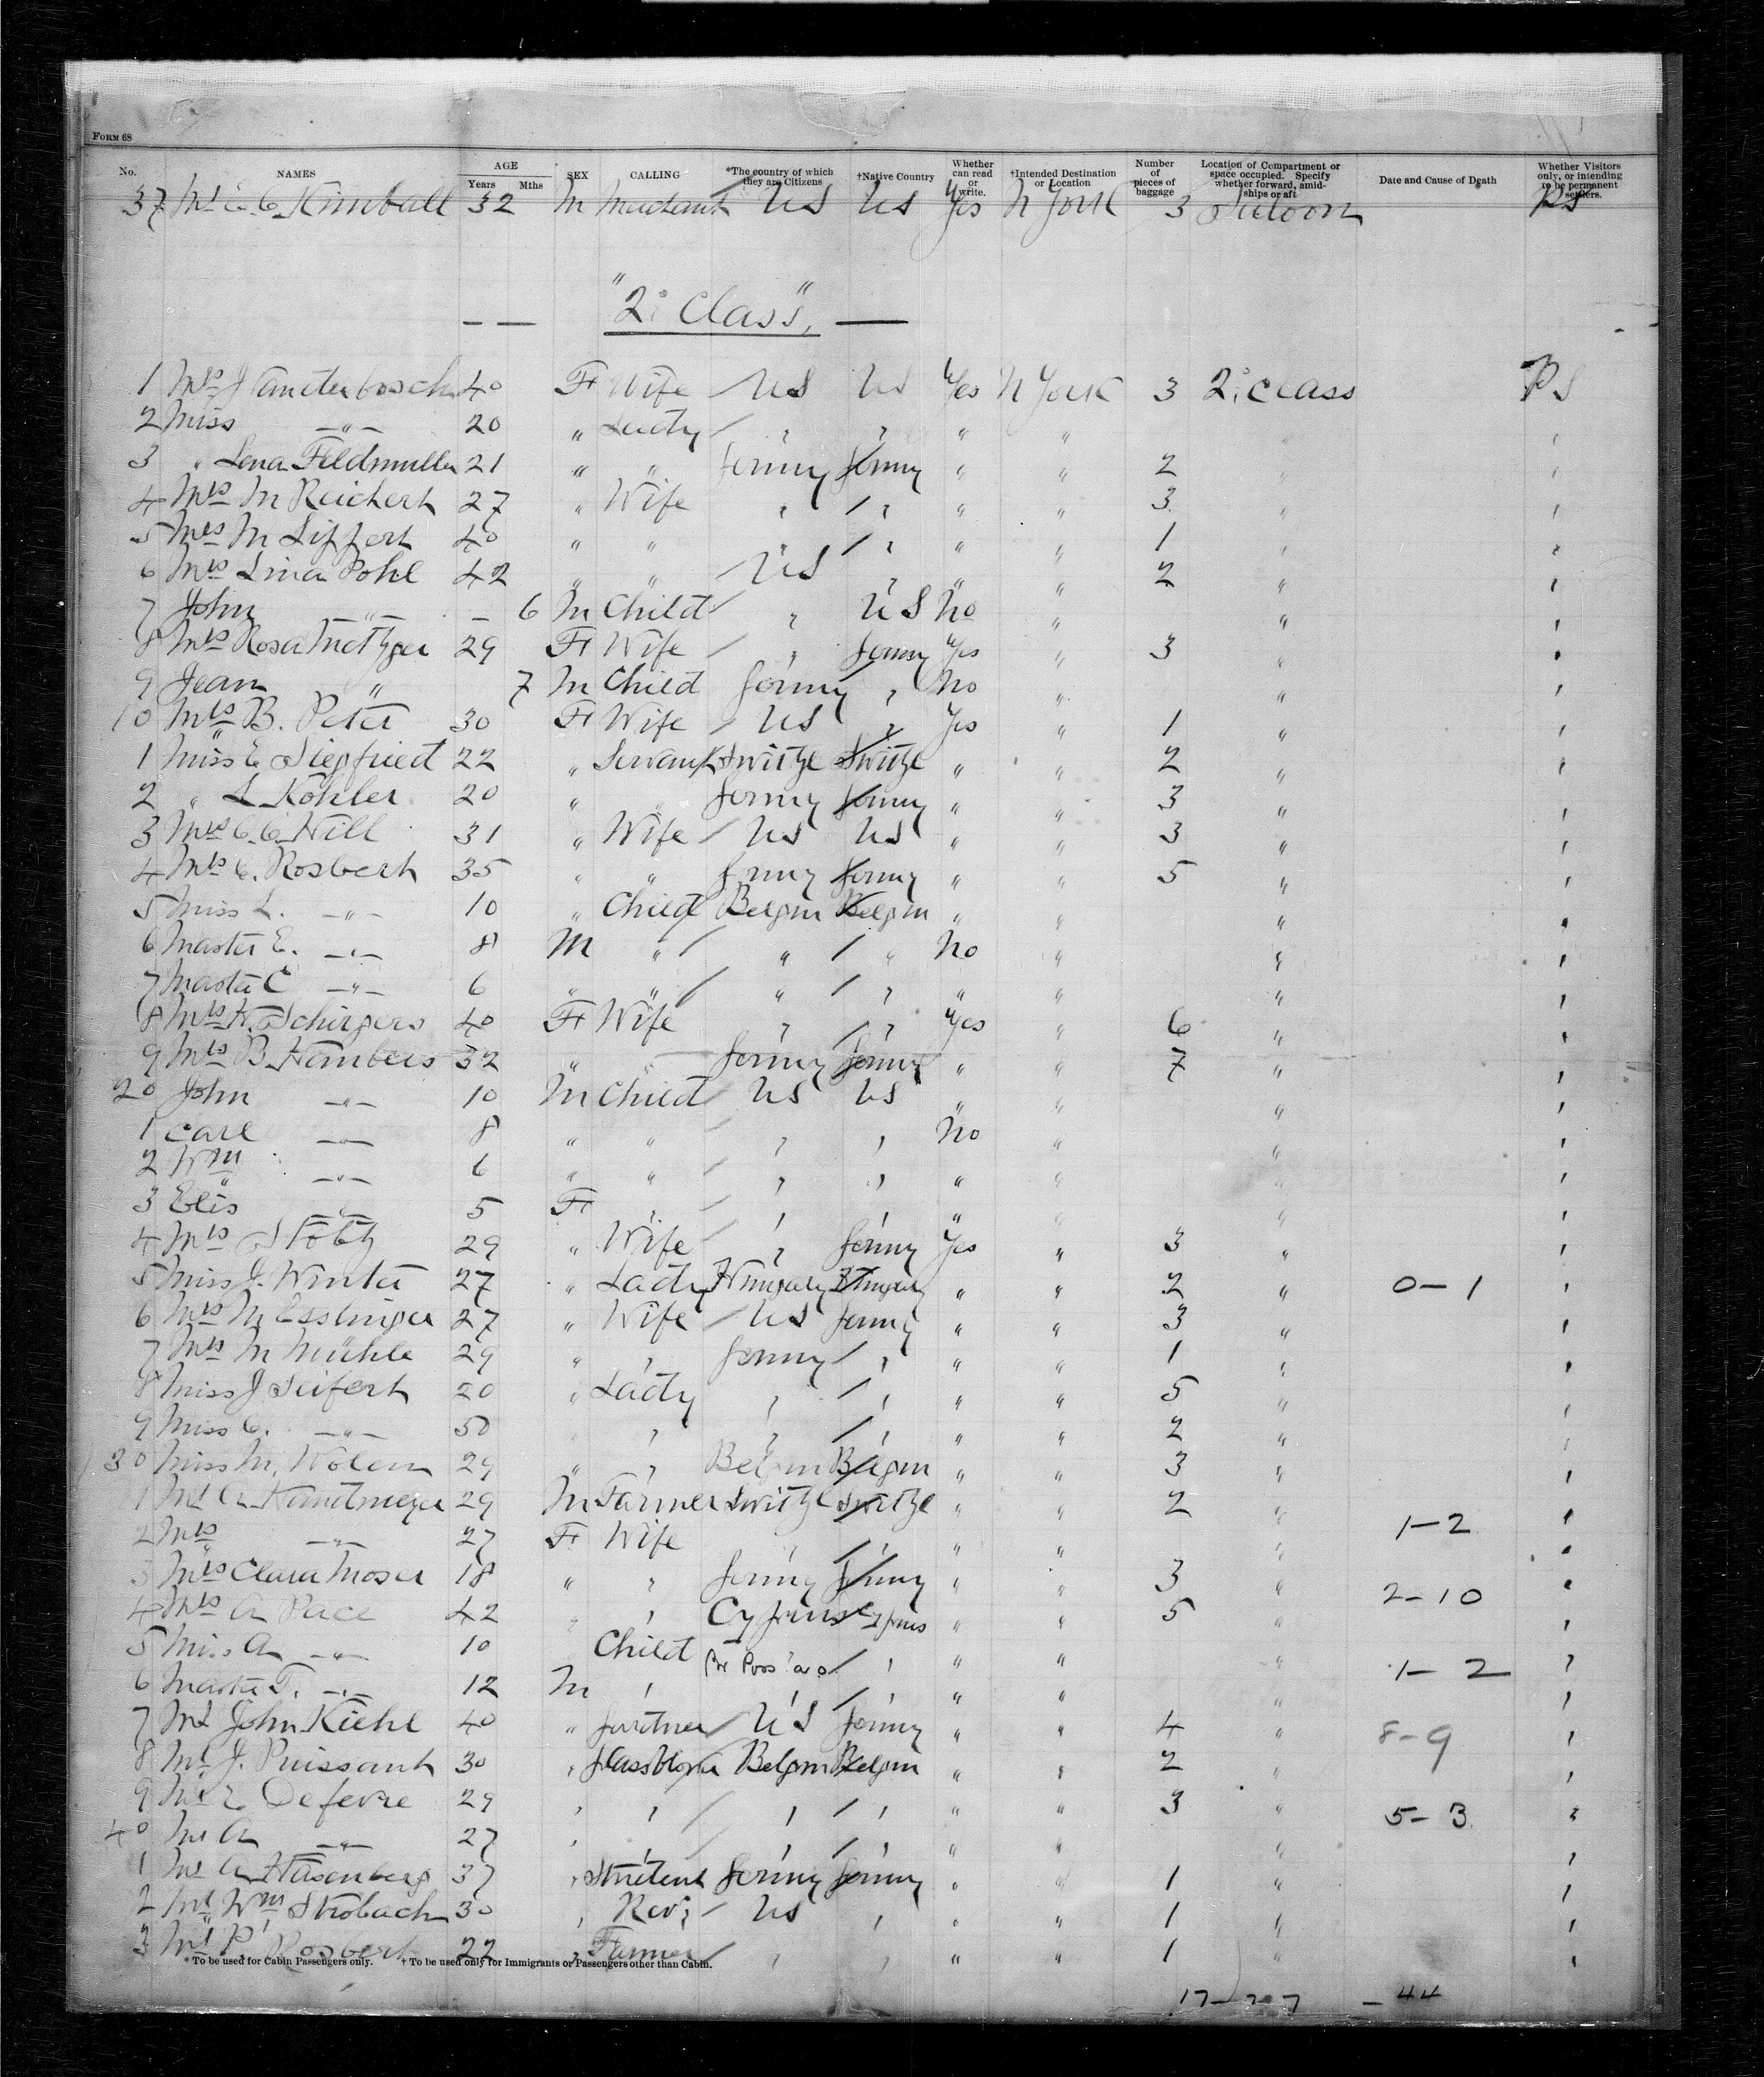 FORM 68
No. NAMES AGE Years Mths SEX CALLING *The country of which they are Citizens †Native Country Whether can read or write. †Intended Destination or Location Number of pieces of baggage Location of Compartment or space occupied. Specify whether forward, amidships or aft Date and Cause of Death Whether Visitors only, or intending to be permanent settlers.
37 Mr C. C. Kimball 32 M Merchant US US Yes N York 3 Saloon PS
"2: Class",
1 Mrs J Vanderbosch 40 F Wife US US Yes N York 3 2: Class PS
2 Miss —"— 20 " Lady / , , " " " ,
3 " Lena Feldmuller 21 " " Germy Germy " " 2 " ,
4 Mrs M Reichert 27 " Wife , / , " " 3 " ,
5 Mrs M Lippert 40 " " , / , " " 1 " ,
6 Mrs Lina Pohl 42 " " US , " " 2 " ,
7 John —"— — 6 M Child / , US No " " ,
8 Mrs Rosa Metzger 29 F Wife / , Germy Yes " 3 " ,
9 Jean " 7 M Child Germy , No " " ,
10 Mrs B. Peter 30 F Wife / US , Yes " 1 " ,
1 Miss E Siegfried 22 " Servant Switzl Switzl " " 2 " ,
2 " L Kohler 20 " " Germy Germy " " 3 " ,
3 Mrs C. C. Hill 31 " Wife / US US " " 3 " ,
4 Mrs C. Rosbert 35 " " Germy Germy " " 5 " ,
5 Miss L. —"— 10 " Child Belgm Belgm " " " ,
6 Master E. —"— 8 M " / " / " No " " ,
7 Master C —"— 6 " " / " / , " " " ,
8 Mrs H. Schirgers 40 F Wife , / , Yes " 6 " ,
9 Mrs B Hambers 32 " " Germy Germy " " 7 " ,
20 John —"— 10 M Child US US " " " ,
1 Carl —"— 8 " " / , , No " " ,
2 Wm —"— 6 " " / , , " " " ,
3 Elis —"— 5 F , / , , " " " ,
4 Mrs Stotz 29 " Wife / , Germy Yes " 3 " ,
5 Miss J. Winter 27 " Lady Hungary Hungary " " 2 " 0-1 ,
6 Mrs M Esslinger 27 " Wife / US Germy " " 3 " ,
7 Mrs M Mühle 29 " , Germy / , " " 1 " ,
8 Miss J Seifert 20 " Lady , / , " " 5 " ,
9 Miss C. —"— 50 " , , / , " " 2 " ,
30 Miss M. Wolem 29 " , Belgm Belgm " " 3 " ,
1 Mr A Kundmeyer 29 M Farmer Switzl Switzl " " 2 " 1-2 ,
2 Mrs —"— 27 F Wife , / , " " " ,
3 Mrs Clara Moser 18 " , Germy Germy " " 3 " 2-10 ,
4 Mrs A Pace 42 " , Cyprus Cyprus " " 5 " ,
5 Miss A —"— 10 Child / , " " " 1-2 ,
6 Master T. —"— 12 M , , / , " " " ,
7 Mr John Kiehl 40 " Gardner / US Germy " " 4 " 8-9 ,
8 Mr J. Puissant 30 , Glassblower Belgm Belgm " " 2 " ,
9 Mr E Defevre 29 , , / , / , " " 3 " 5-3 ,
40 Mr A —"— 27 , , / , / , " " " ,
1 Mr A Hasenberg 37 , Student Germy Germy " " 1 " ,
2 Mr Wm Strobach 30 , Rev; / US , " " 1 " ,
3 Mr P. Rosbert 22 , Farmer / , , " " 1 " ,
* To be used for Cabin Passengers only. † To be used only for Immigrants or Passengers other than Cabin.
17 — 44